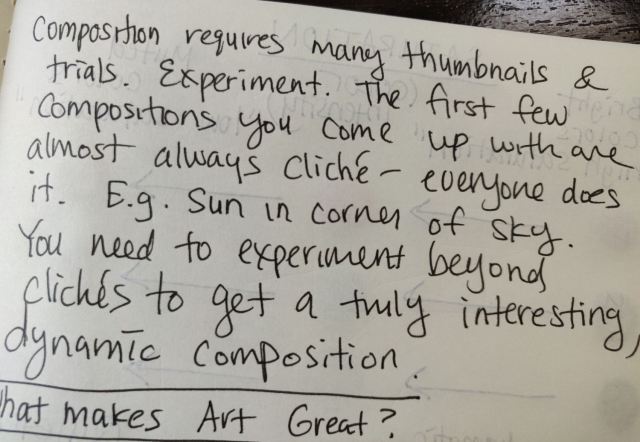 Composition requires many thumbnails &
trials. Experiment. The first few
Compositions you come up with are
almost always cliché - everyone does
it. E.g. Sun in corner of sky.
You need to experiment beyond
clichés to get a truly interesting,
dynamic composition.
hat makes Art Great?